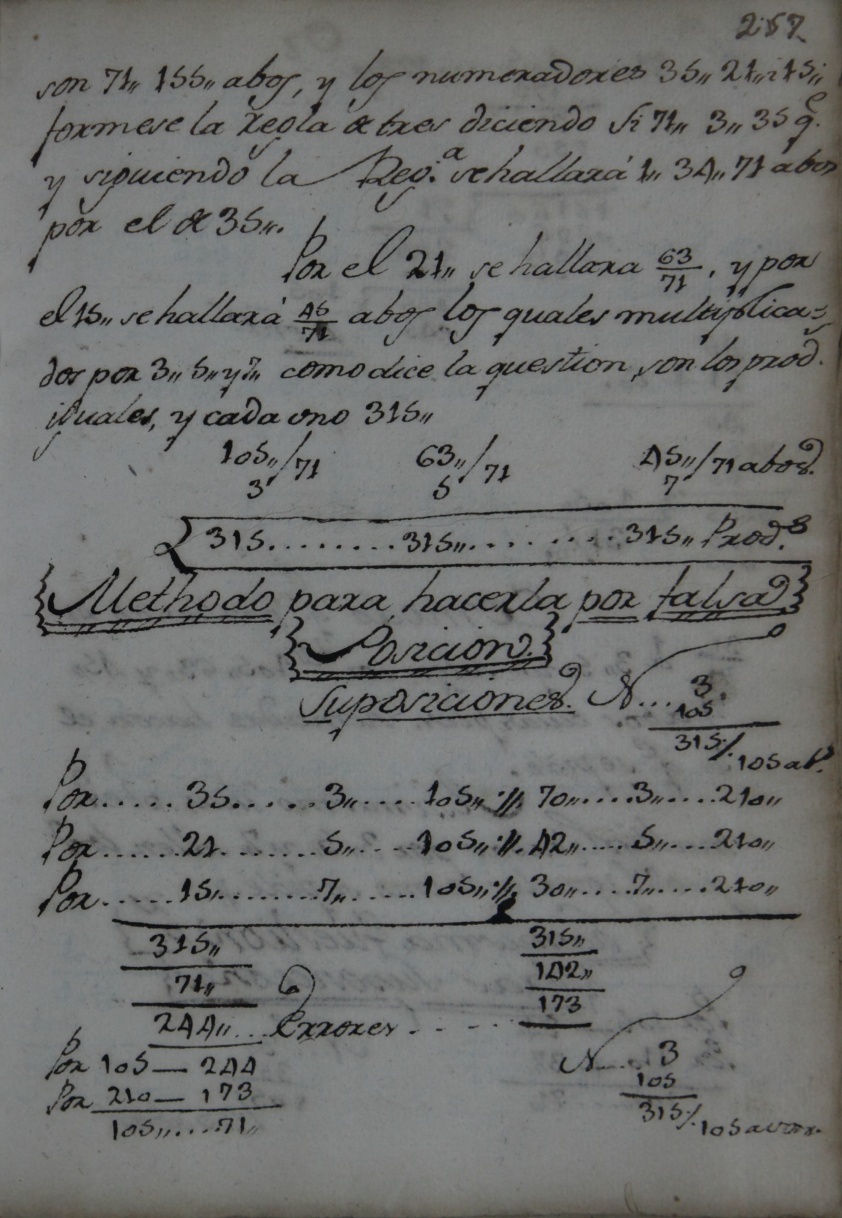 257
son 71,, 155,, abos, y los numeradores 35,, 21,, i 15,,
formese la regla de tres diciendo Si 71,, 3,, 35 q.e
y siguiendo la Reg.a se hallará 1,, 34,, 71 abos
por el de 35,,.
Por el 21,, se hallara 63/71, y por
el 15,, se hallará 45/71 abos los quales multiplica=
dos por 3,, 5,, y 7,, como dice la question, son los prod.
iguales, y cada uno 315,,
105,,/71 63,,/71 45,,/71 abos.
3 5 7
315........315,,........315,, Prod.s
Methodo para hacerla por falsa
Posicion.
Suposiciones. N....3.
105
315/105 ab.s
Por.....35.....3,,.....105,,·//.70,,....3,,....210,,
Por......21.......5,,.....105,,·//.42,,....5,,....210,,
Por......15.......7,,.....105,,·//.30,,....7,,....210,,
315,, 315,,
71,, 142,,
244,,...Errores..... 173
Por 105— 244 N....3
Por 210— 173 105
105,,....71,, 315/105 avos.